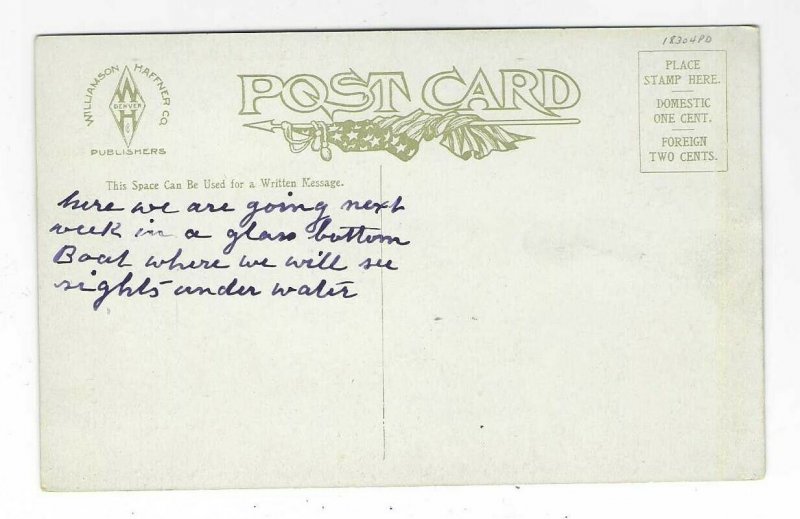 18304PD
WILLIAMSON HAFFNER CO.
W
DENVER
H
PUBLISHERS
POST CARD
PLACE
STAMP HERE.
DOMESTIC
ONE CENT.
FOREIGN
TWO CENTS.
This Space Can Be Used for a Written Message.
here we are going next
week in a glass bottom
Boat where we will see
sights under water